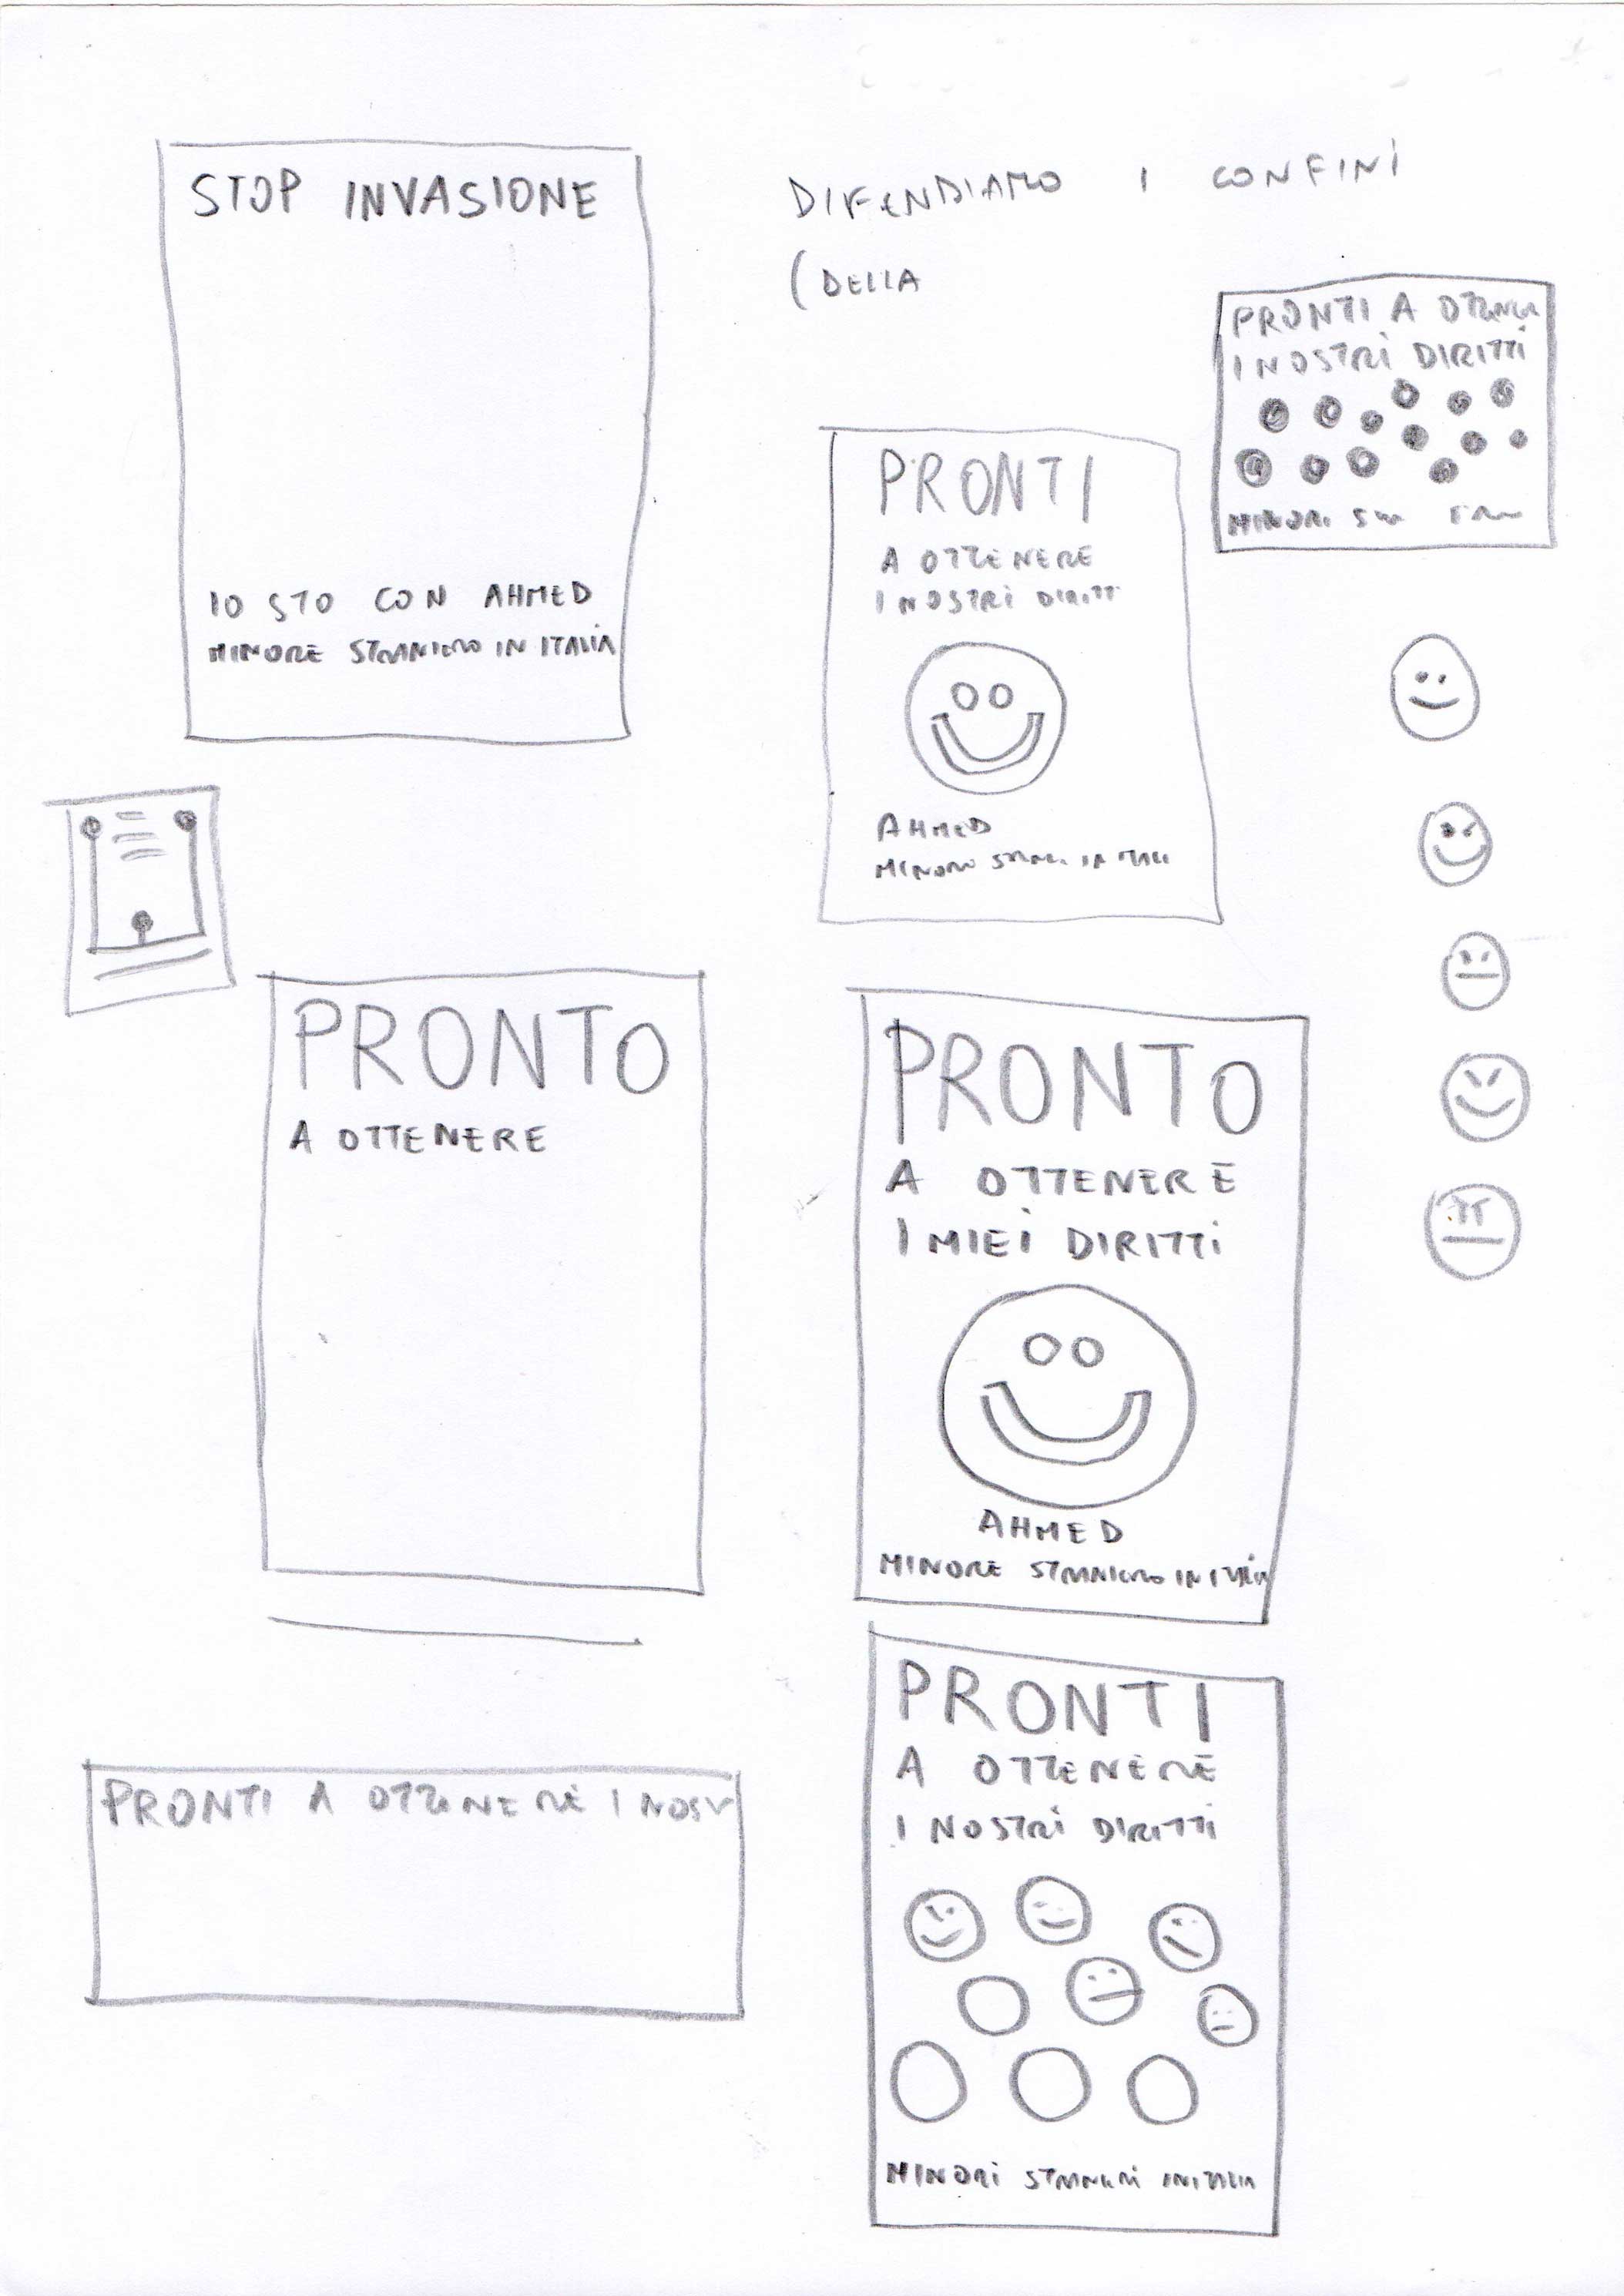 STOP INVASIONE
IO STO CON AHMED
MINORE STRANIERO IN ITALIA
DIFENDIAMO I CONFINI
(DELLA
PRONTI A OTTENERE
I NOSTRI DIRITTI
MINORI
PRONTI
A OTTENERE
I NOSTRI DIRITT
AHMED
MINORI IN ITALI
PRONTO
A OTTENERE
PRONTO
A OTTENERE
I MIEI DIRITTI
AHMED
MINORE STRANIERO IN ITALIA
PRONTI A OTTENERE I NOST
PRONTI
A OTTENERE
I NOSTRI DIRITTI
MINORI STRANIERI IN ITALIA